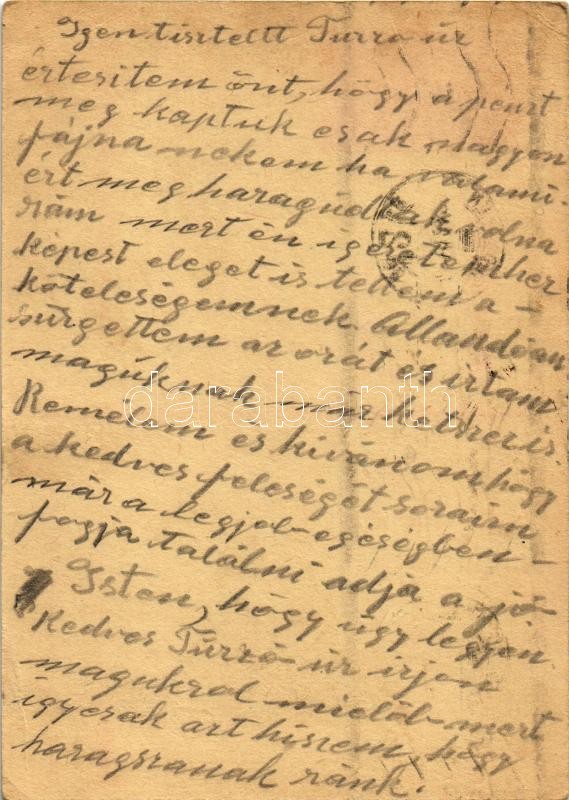 Igen tisztelt Turzó úr
értesitem önt, hogy a penzt
meg kaptuk csak nagyon
fájna nekem ha valami-
ért meg haragudtak volna
rám mert én igéretemhez
képest eleget is tettem a-
köteleségemnek. Állandóan
sürgettem az órát és irtam
magúknak már kétszer is.
Remélem és kivánom hogy
a kedves feleségét soraim
már a legjob egéségben-
fogja találni adja a jó-
Isten, hogy úgy legyen.
Kedves Túrzó úr irjon
magukrol mielőb mert
igycsak azt hiszem, hogy
haragszanak ránk.
darabanth